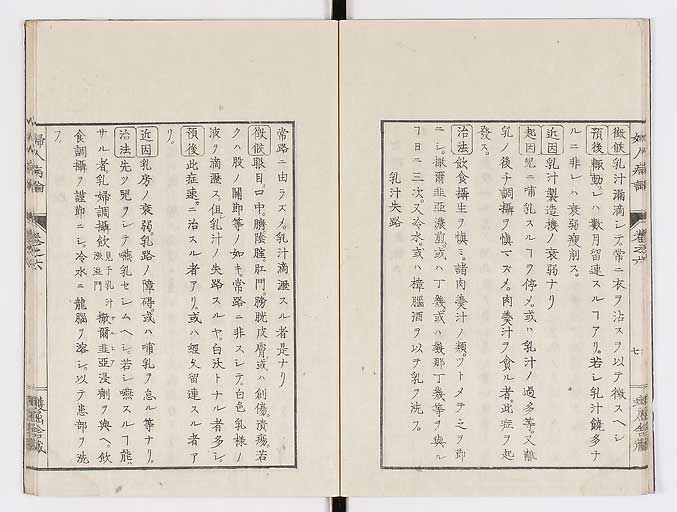 婦人病論
卷之六
七
雙鳳舍藏
徴候乳汁漏滴シテ常ニ衣ヲ沾スヲ以テ徴スヘシ
預後輙動レハ數月留連スルヿアリ。若シ乳汁饒多ナ
ルニ非レハ衰弱瘦削ス。
近因乳汁製造機ノ衰弱ナリ
起因兒ニ哺乳スルヿヲ停メ。或ハ乳汁ノ過多等。又離
乳ノ後チ調攝ヲ愼マスメ。肉羹汁ヲ貪ル者。此症ヲ起
發ス。
治法飲食攝生ヲ愼ミ。諸肉羹汁ノ類。ツトメテ之ヲ節
ニシ。撒爾非亞濃煎。或ハ丁幾。或ハ幾那丁幾等ヲ與ル
ヿ日ニ三次。又冷水。或ハ樟腦酒ヲ以テ乳ヲ洗フ。
乳汁失路
常路ニ由ラスメ。乳汁滴瀝スル者是ナリ
徴候眼目口中。臍陰腟肛門膀胱皮膚。或ハ創傷。潰瘍。若
クハ股ノ關節等ノ如キ。常路ニ非スシテ。白色乳樣ノ
液ヲ滴瀝ス。但乳汁ノ失路スルヤ。白汏トナル者多シ。
預後此症速ニ治スル者アリ。或ハ經久留連スル者ア
リ。
近因乳房ノ衰弱。乳路ノ障碍。或ハ哺乳ヲ怠ル等ナリ。
治法先ツ兒ヲシテ嚥乳セシムヘシ。若シ嚥スルヿ能ハ
サル者。乳婦調攝飲 撒爾非亞浸劑ヲ與ヘ。飲
食調攝ヲ謹節ニシ。冷水ニ龍腦ヲ溶シ。以テ患部ヲ洗
フ。
婦人病論
卷之六
雙鳳舍藏